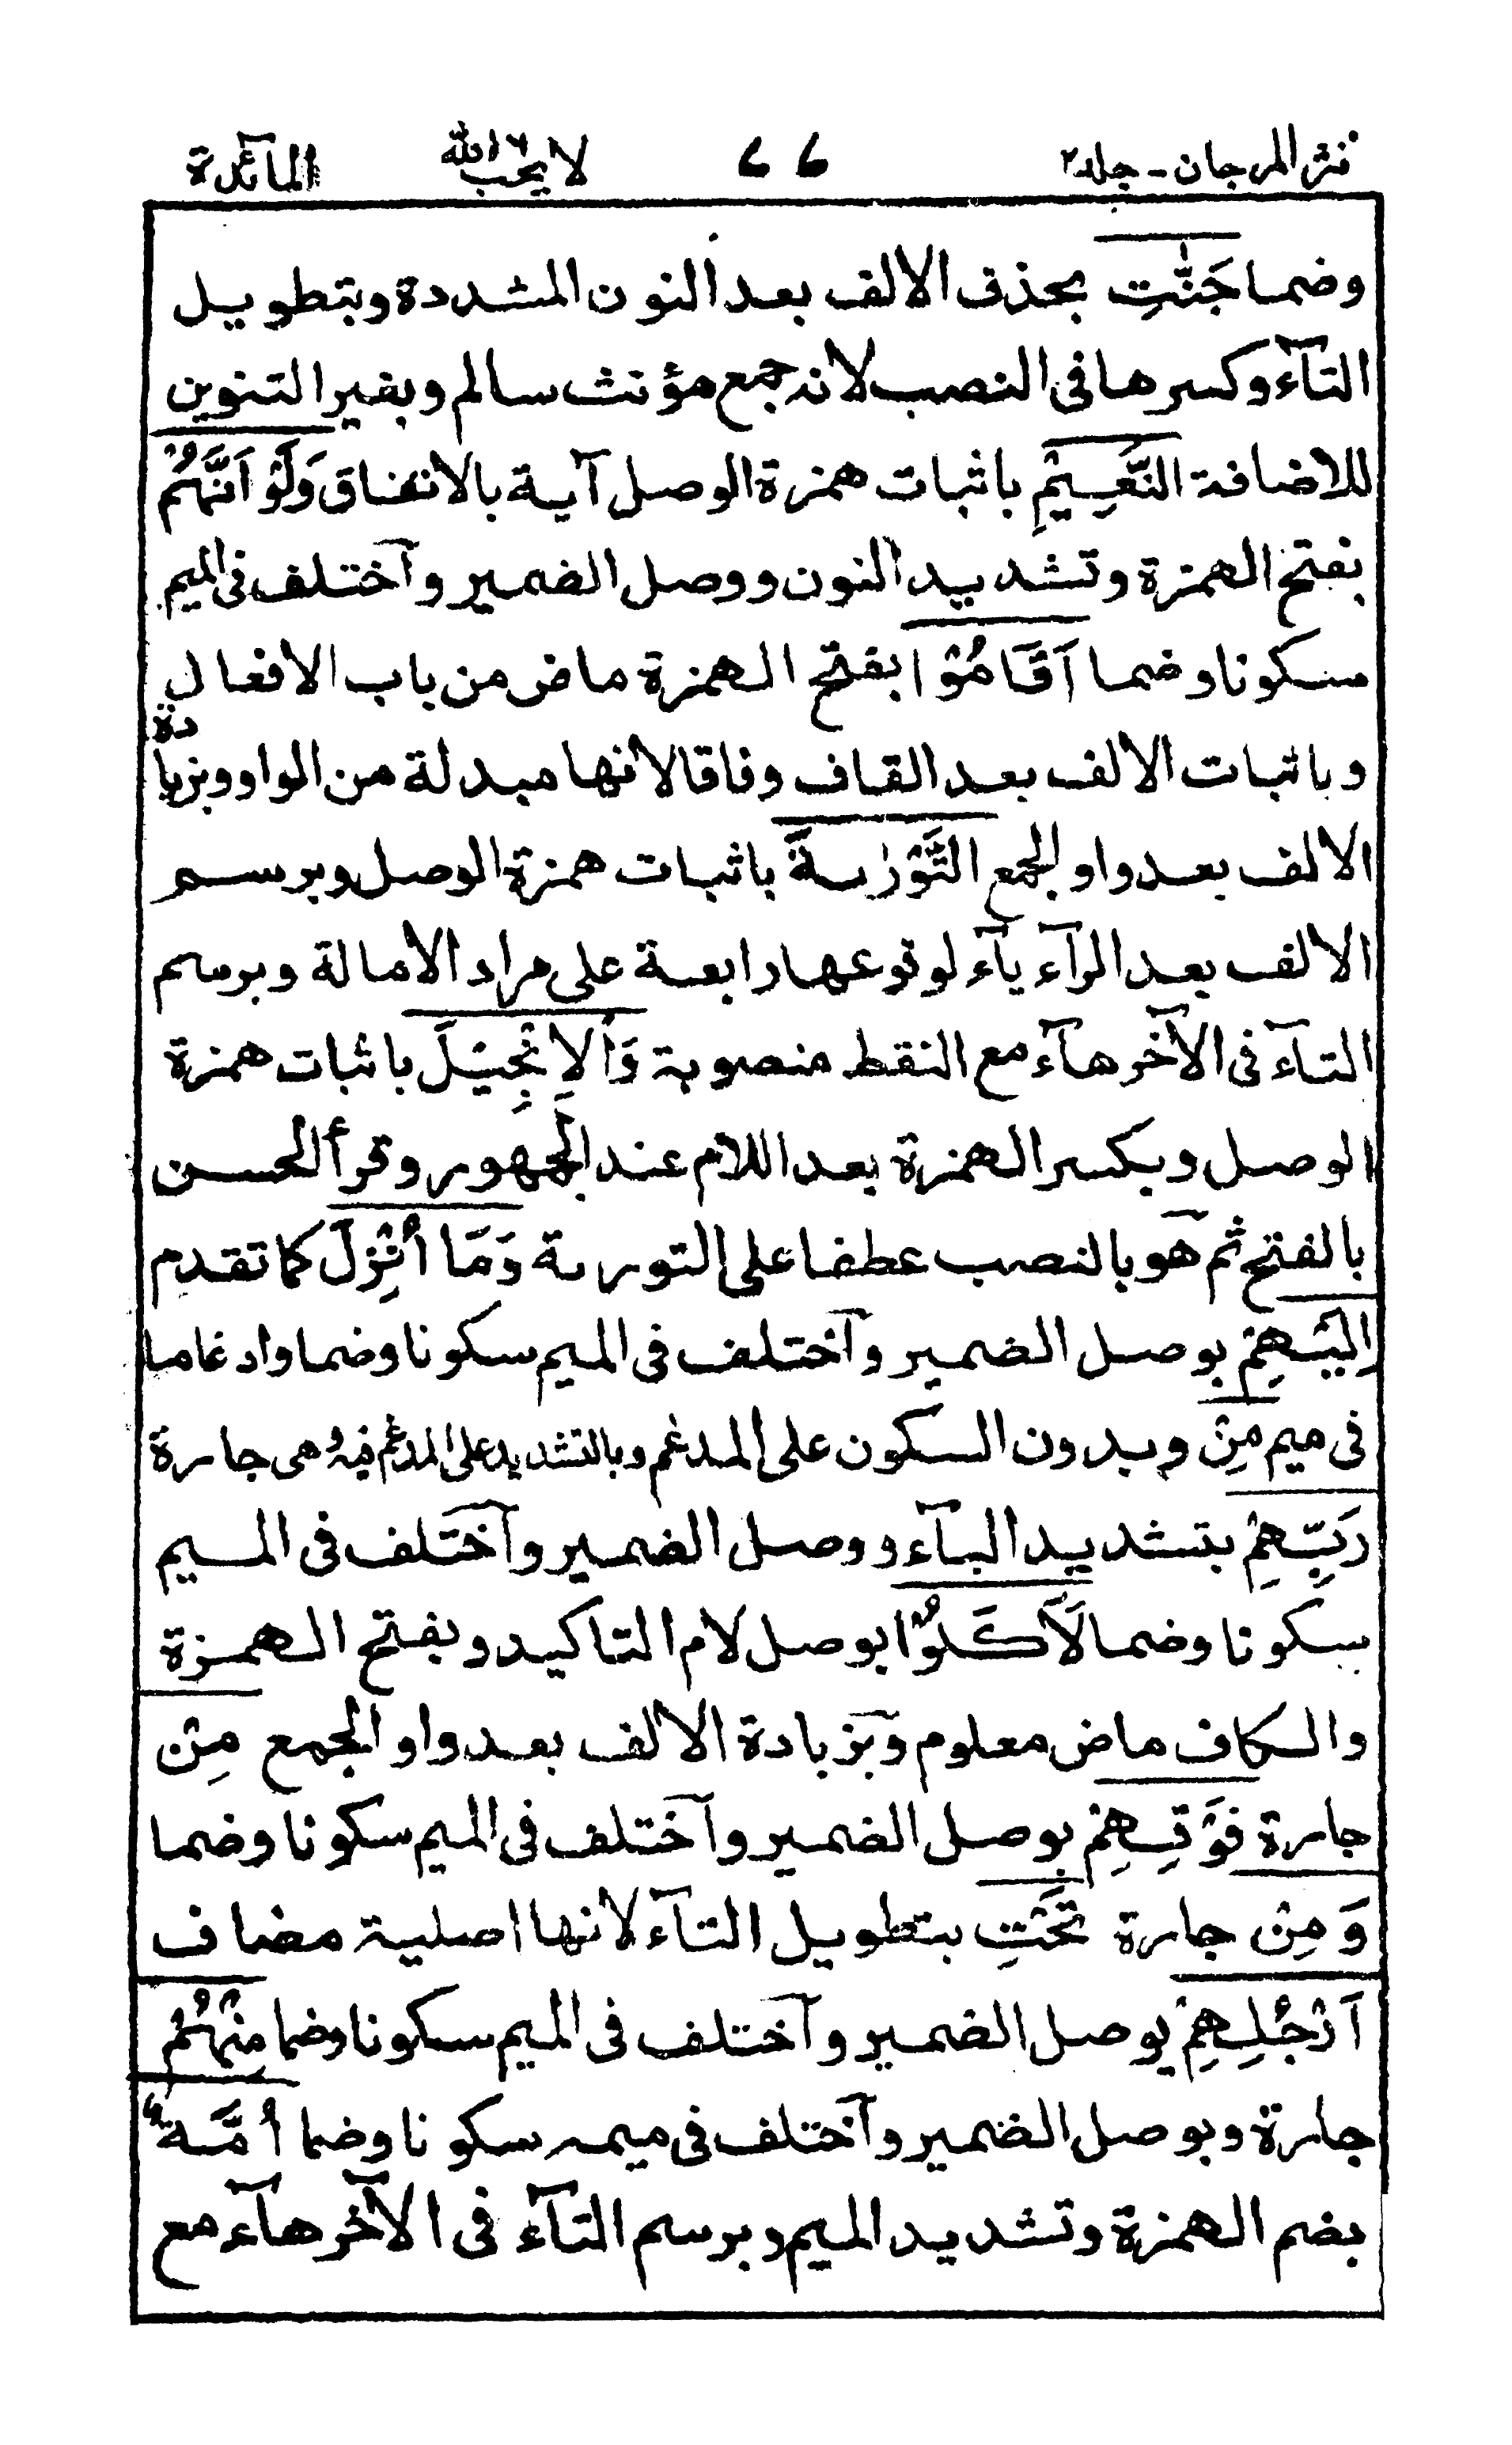 نثر المرجان - جلد ٢ ٦٦ لا يحب الله ٦ المآئدة
وضما جَنّٰتِ بحذف الالف بعد النون المشددة وبتطويل
التآء وكسرها فى النصب لانه جمع مؤنث سالم وبغير التنوين
للاضافة النَّعِيْمِ باثبات همزة الوصل آية بالاتفاق وَلَوْ اَنَّهُمْ
بفتح الهمزة وتشديد النون ووصل الضمير وآختلف فى الميم
سكونا وضما اَقَامُوْا بفتح الهمزة ماض من باب الافعال
وباثبات الالف بعد القاف وفاقا لانها مبدلة من الواو وبزيادة
الالف بعد واو الجمع التَّوْرٰىةَ باثبات همزة الوصل وبرسم
الالف بعد الرآء يآء لوقوعها رابعة على مراد الامالة وبرسم
التآء فى الآخر هآء مع النقط منصوبة وَالْاِنْجِيْلَ باثبات همزة
الوصل وبكسر الهمزة بعد اللام عند الجمهور وقرأ الحسن
بالفتح ثم هو بالنصب عطفا على التورىة وَمَآ اُنْزِلَ كما تقدم
اِلَيْهِمْ بوصل الضمير وآختلف فى الميم سكونا وضما وادغاما
فى ميم مِنْ وبدون السكون على المدغم وبالتشديد على المدغم فيه وهى جارة
رَبِّهِمْ بتشديد البآء ووصل الضمير وآختلف فى الميم
سكونا وضما لَاَكَلُوْا بوصل لام التاكيد وبفتح الهمزة
والكاف ماض معلوم وبزيادة الالف بعد واو الجمع مِنْ
جارة فَوْقِهِمْ بوصل الضمير وآختلف فى الميم سكونا وضما
وَمِنْ جارة تَحْتِ بتطويل التآء لانها اصلية مضاف
اَرْجُلِهِمْ بوصل الضمير وآختلف فى الميم سكونا وضما مِنْهُمْ
جارة وبوصل الضمير وآختلف فى ميمه سكونا وضما اُمَّةٌ
بضم الهمزة وتشديد الميم وبرسم التآء فى الآخر هآء مع